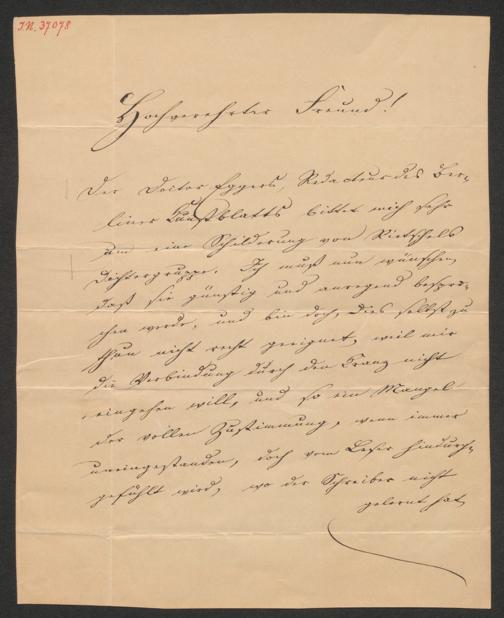 I.N. 37078
Hochverehrter Freund!
Der Doctor Eggers, Redacteur des Ber-
liner Kunstblatts bittet mich sehr
um eine Schilderung von Rietschels
Dichtergruppe. Ich muß nun wünschen,
daß sie günstig und anregend bespro-
chen werde, und bin doch, dies selbst zu
thun nicht recht geeignet, weil mir
die Verbindung durch den Kranz nicht
eingehen will, und so ein Mangel
der vollen Zustimmung, wenn immer
uneingestanden, doch vom Leser hindurch-
gefühlt wird, wo der Schreiber nicht
gelernt hat